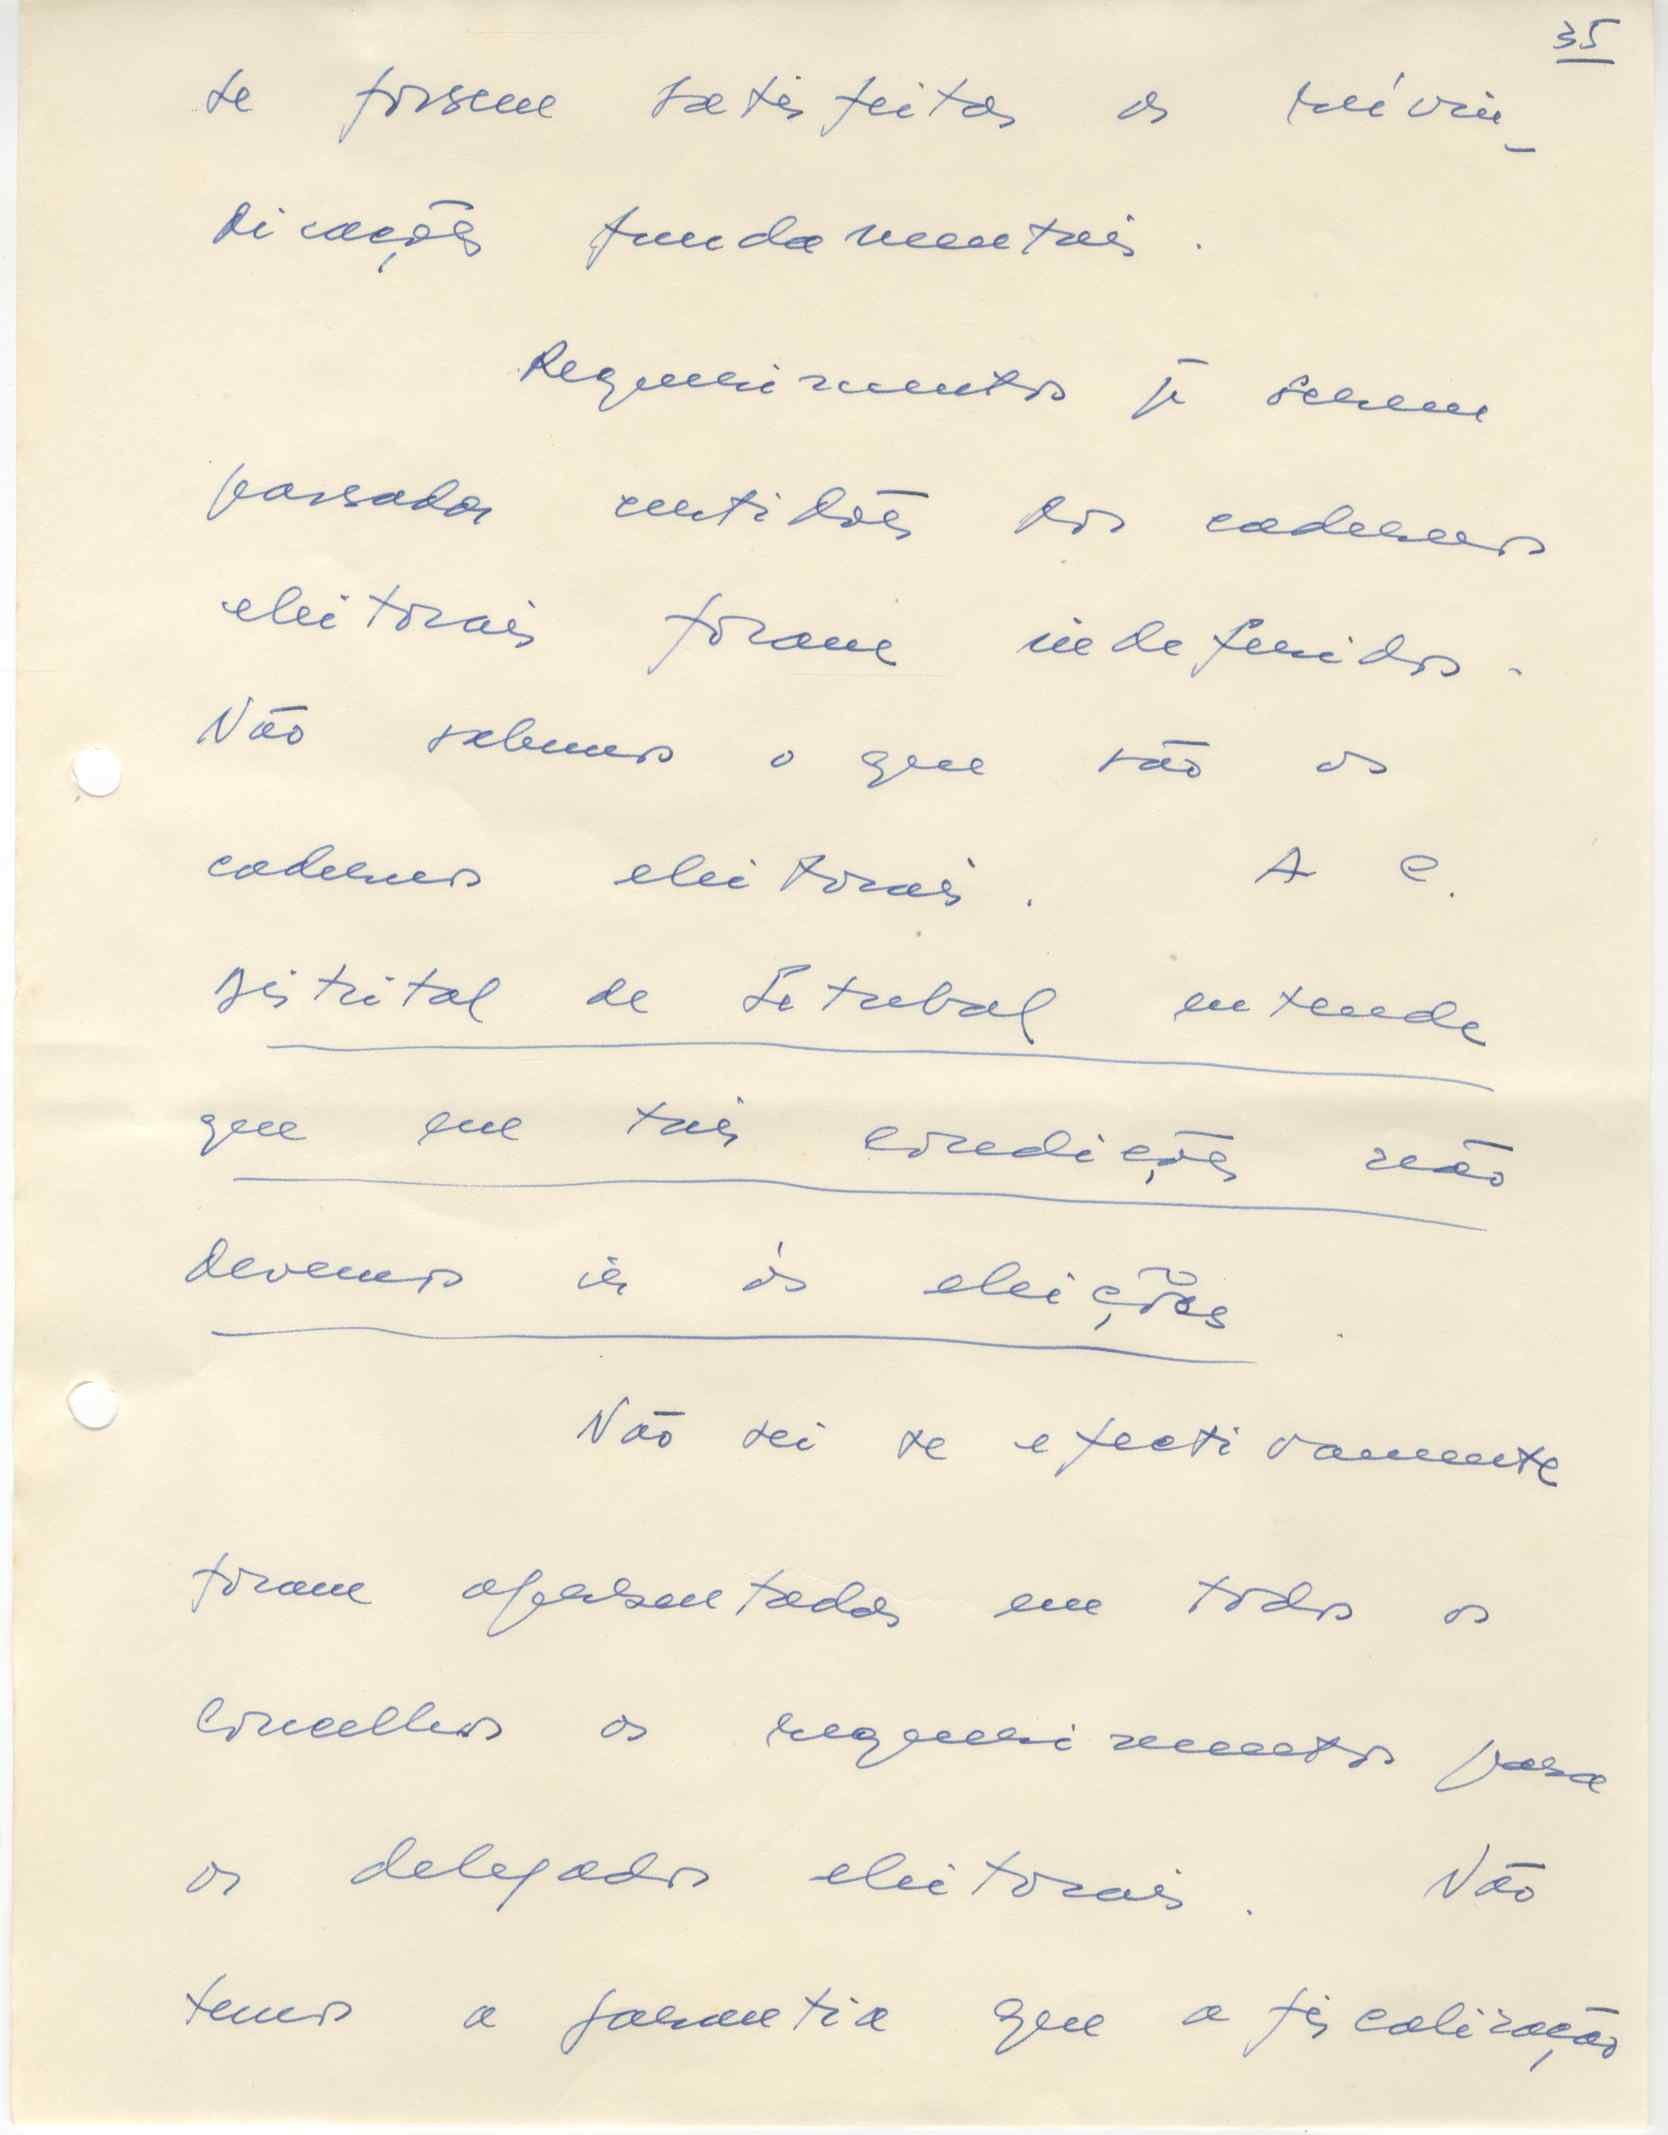 35
se fossem satisfeitas as reivin-
dicações fundamentais.
Requerimentos p. serem
passadas certidões dos cadernos
eleitorais foram indeferidos.
Não sabemos o que são os
cadernos eleitorais. A C.
Distrital de Setubal entende
que em tais condições não
devemos ir às eleições.
Não sei se efectivamente
foram apresentados em todos os
Concelhos os requerimentos para
os delegados eleitorais. Não
temos a garantia que a fiscalização